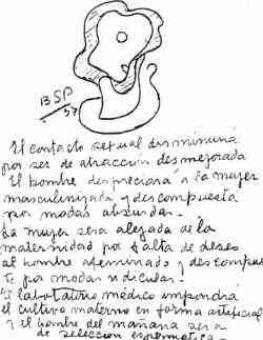 BSP
37
El contacto sexual disminuirá
por ser de atracción desmejorada
El hombre despreciará a la mujer
masculinizada y descompuesta
por modas absurdas.
La mujer será alejada de la
maternidad por falta de deseo
al hombre afeminado y descompues
to por modas ridiculas.
El laboratorio médico impondrá
el cultivo materno en forma artificial
y el hombre del mañana será
de selección espermática.